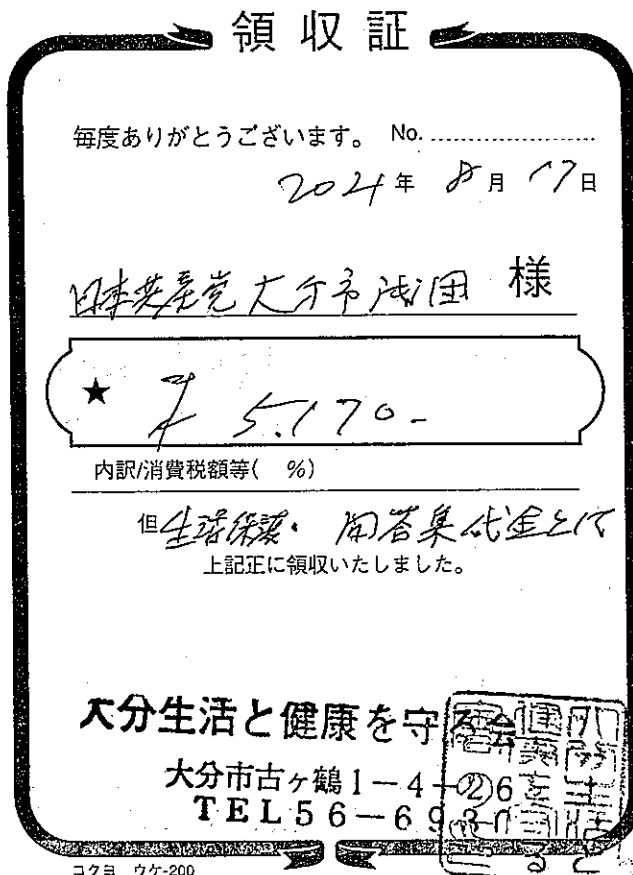 領収証
毎度ありがとうございます。 No.
2021年 8月 17日
日本共産党大分市議団 様
★ ¥ 5,170-
内訳/消費税額等( %)
但 生活保護・問答集代金として
上記正に領収いたしました。
大分生活と健康を守る会
大分市古ヶ鶴1-4-26
TEL56-6930
コクヨ ウケ-200